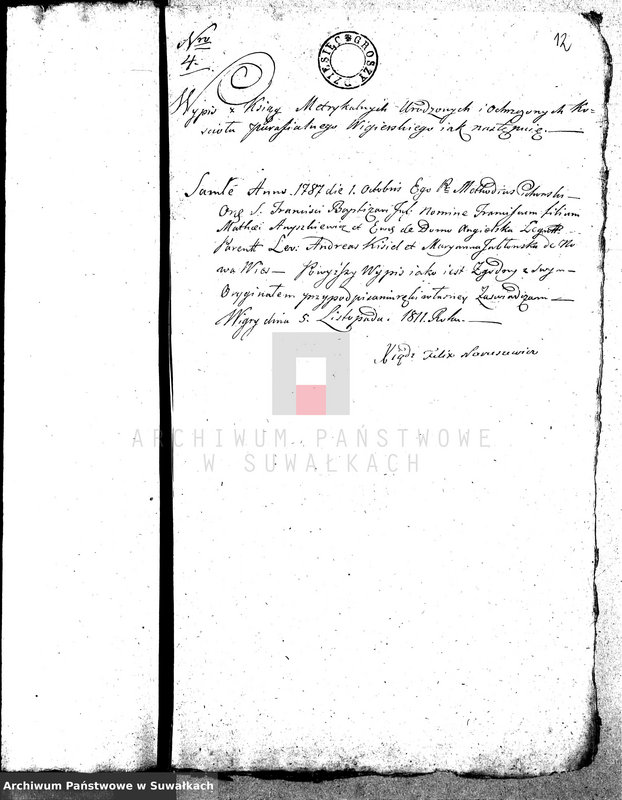 Nro
4.
DZIESIĘC GROSZY
12
Wypis x Xiąg Metrykalnych Urodzonych i ochrzconych Ko-
scioła parafialnego Wigierskiego iak następuie.
Anno 1787 die 1. Octobris Ego Methodius
S. Francisci Baptizavi nomine Franciscum filium
Mathei Anyszkiewicz et Evas de Domo
Parent Lev: Andreas Kisiel et Maryanna Jabłonska de No-
wa Wies — Powyższy Wypis iako iest Zgodny z swym
Oryginałem przy podpisaniu ręki własney Zaswiadczam
Wigry dnia 5. Listopada. 1811. Roku.
Xiądz Felix Naruszewicz
ARCHIWUM PAŃSTWOWE
W SUWAŁKACH
Archiwum Państwowe w Suwałkach